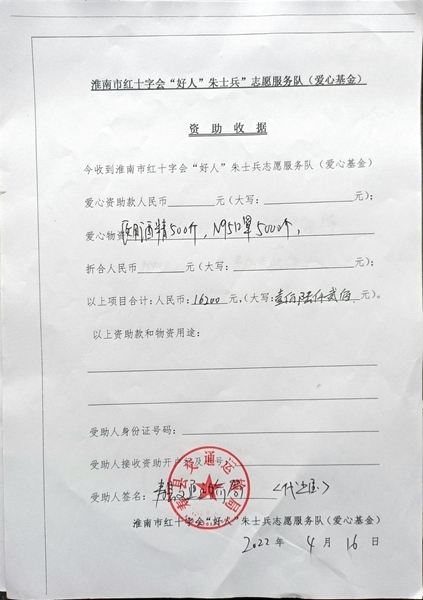 淮南市红十字会“好人”朱士兵”志愿服务队（爱心基金）
资助收据
今收到淮南市红十字会“好人”朱士兵志愿服务队（爱心基金）
爱心资助款人民币______元（大写：______元）；
爱心物资 医用酒精500斤，N95口罩5000个，
折合人民币______元（大写：______元）；
以上项目合计：人民币：16200元，（大写：壹万陆仟贰佰元）。
以上资助款和物资用途：
受助人身份证号码：
受助人接收资助开户 及 号：
受助人签名： 寿县交通运输局
淮南市红十字会“好人”朱士兵志愿服务队（爱心基金）
2022年4月16日